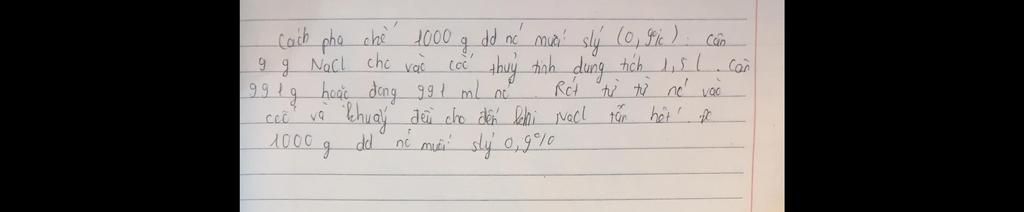 Cách pha chế 1000 g dd nc muối slý (0,9%). Cân
9 g NaCl cho vào cốc thuỷ tinh dung tích 1,5 l. Cân
991g hoặc đong 991 ml nc. Rót từ từ nc vào
cốc và khuấy đều cho đến khi NaCl tan hết. đc
1000 g dd nc muối slý 0,9%